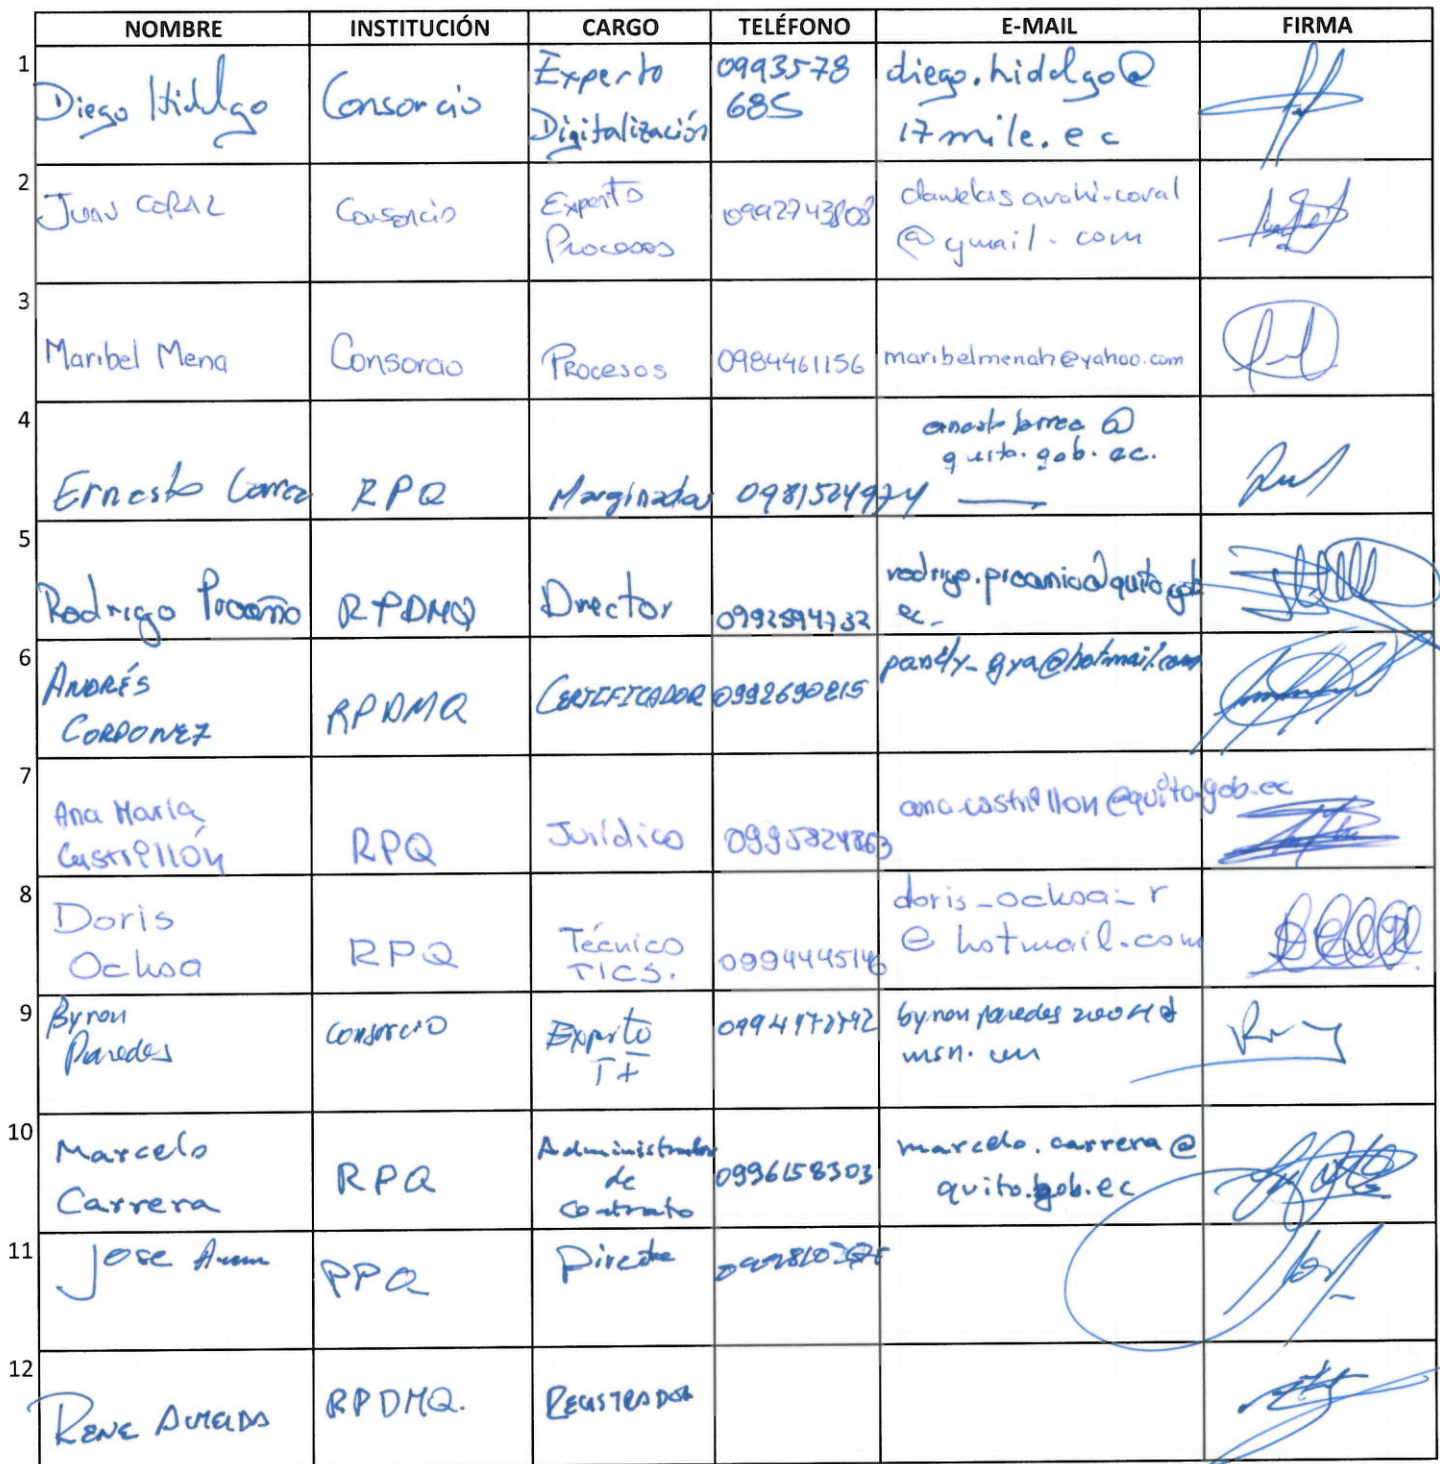 NOMBRE INSTITUCIÓN CARGO TELÉFONO E-MAIL FIRMA
1 Diego Hidalgo Consorcio Experto Digitalización 0993578685 diego.hidalgo@17mile.ec
2 Juan Consorcio Experto Procesos 0992743808 @gmail.com
3 Maribel Mena Consorcio Procesos 0984461156 maribelmenah@yahoo.com
4 Ernesto Larrea RPQ Marginador 0981524974 quito.gob.ec.
5 Rodrigo Proaño RPDMQ Director 0992594732 ec.
6 ANDRÉS CORDONEZ RPDMQ CERTIFICADOR 0992690215
7 Ana María Castrillón RPQ Jurídico ana.castrillon@quito.gob.ec
8 Doris Ochoa RPQ Técnico TICS. 0994445146 doris_ochoa_r@hotmail.com
9 Byron Paredes Consorcio Experto
10 Marcelo Carrera RPQ Administrador de Contrato 0996158303 marcelo.carrera@quito.gob.ec
11 Jose
12 RENE ALMEIDA RPDMQ. REGISTRADOR